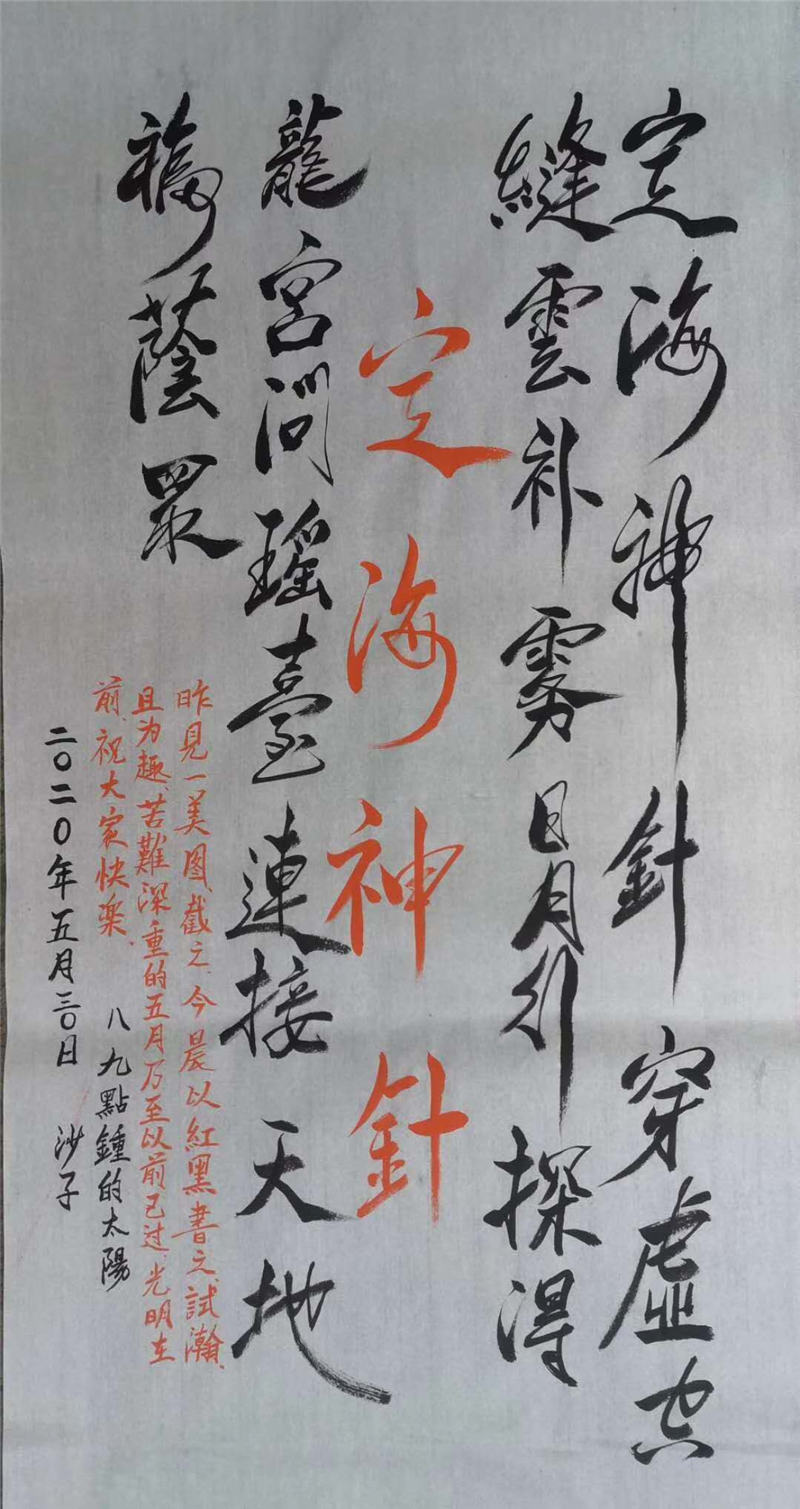 定海神針穿虛空
縫雲补雾日月引探得
定海神針
龍宮问瑶臺連接天地
福蔭眾
昨見一美图、截之、今晨以紅黑書之、試瀚、
且为趣、苦難深重的五月乃至以前已过、光明在
前、祝大家快楽、
八九點鍾的太陽
二〇二〇年五月三〇日 沙子